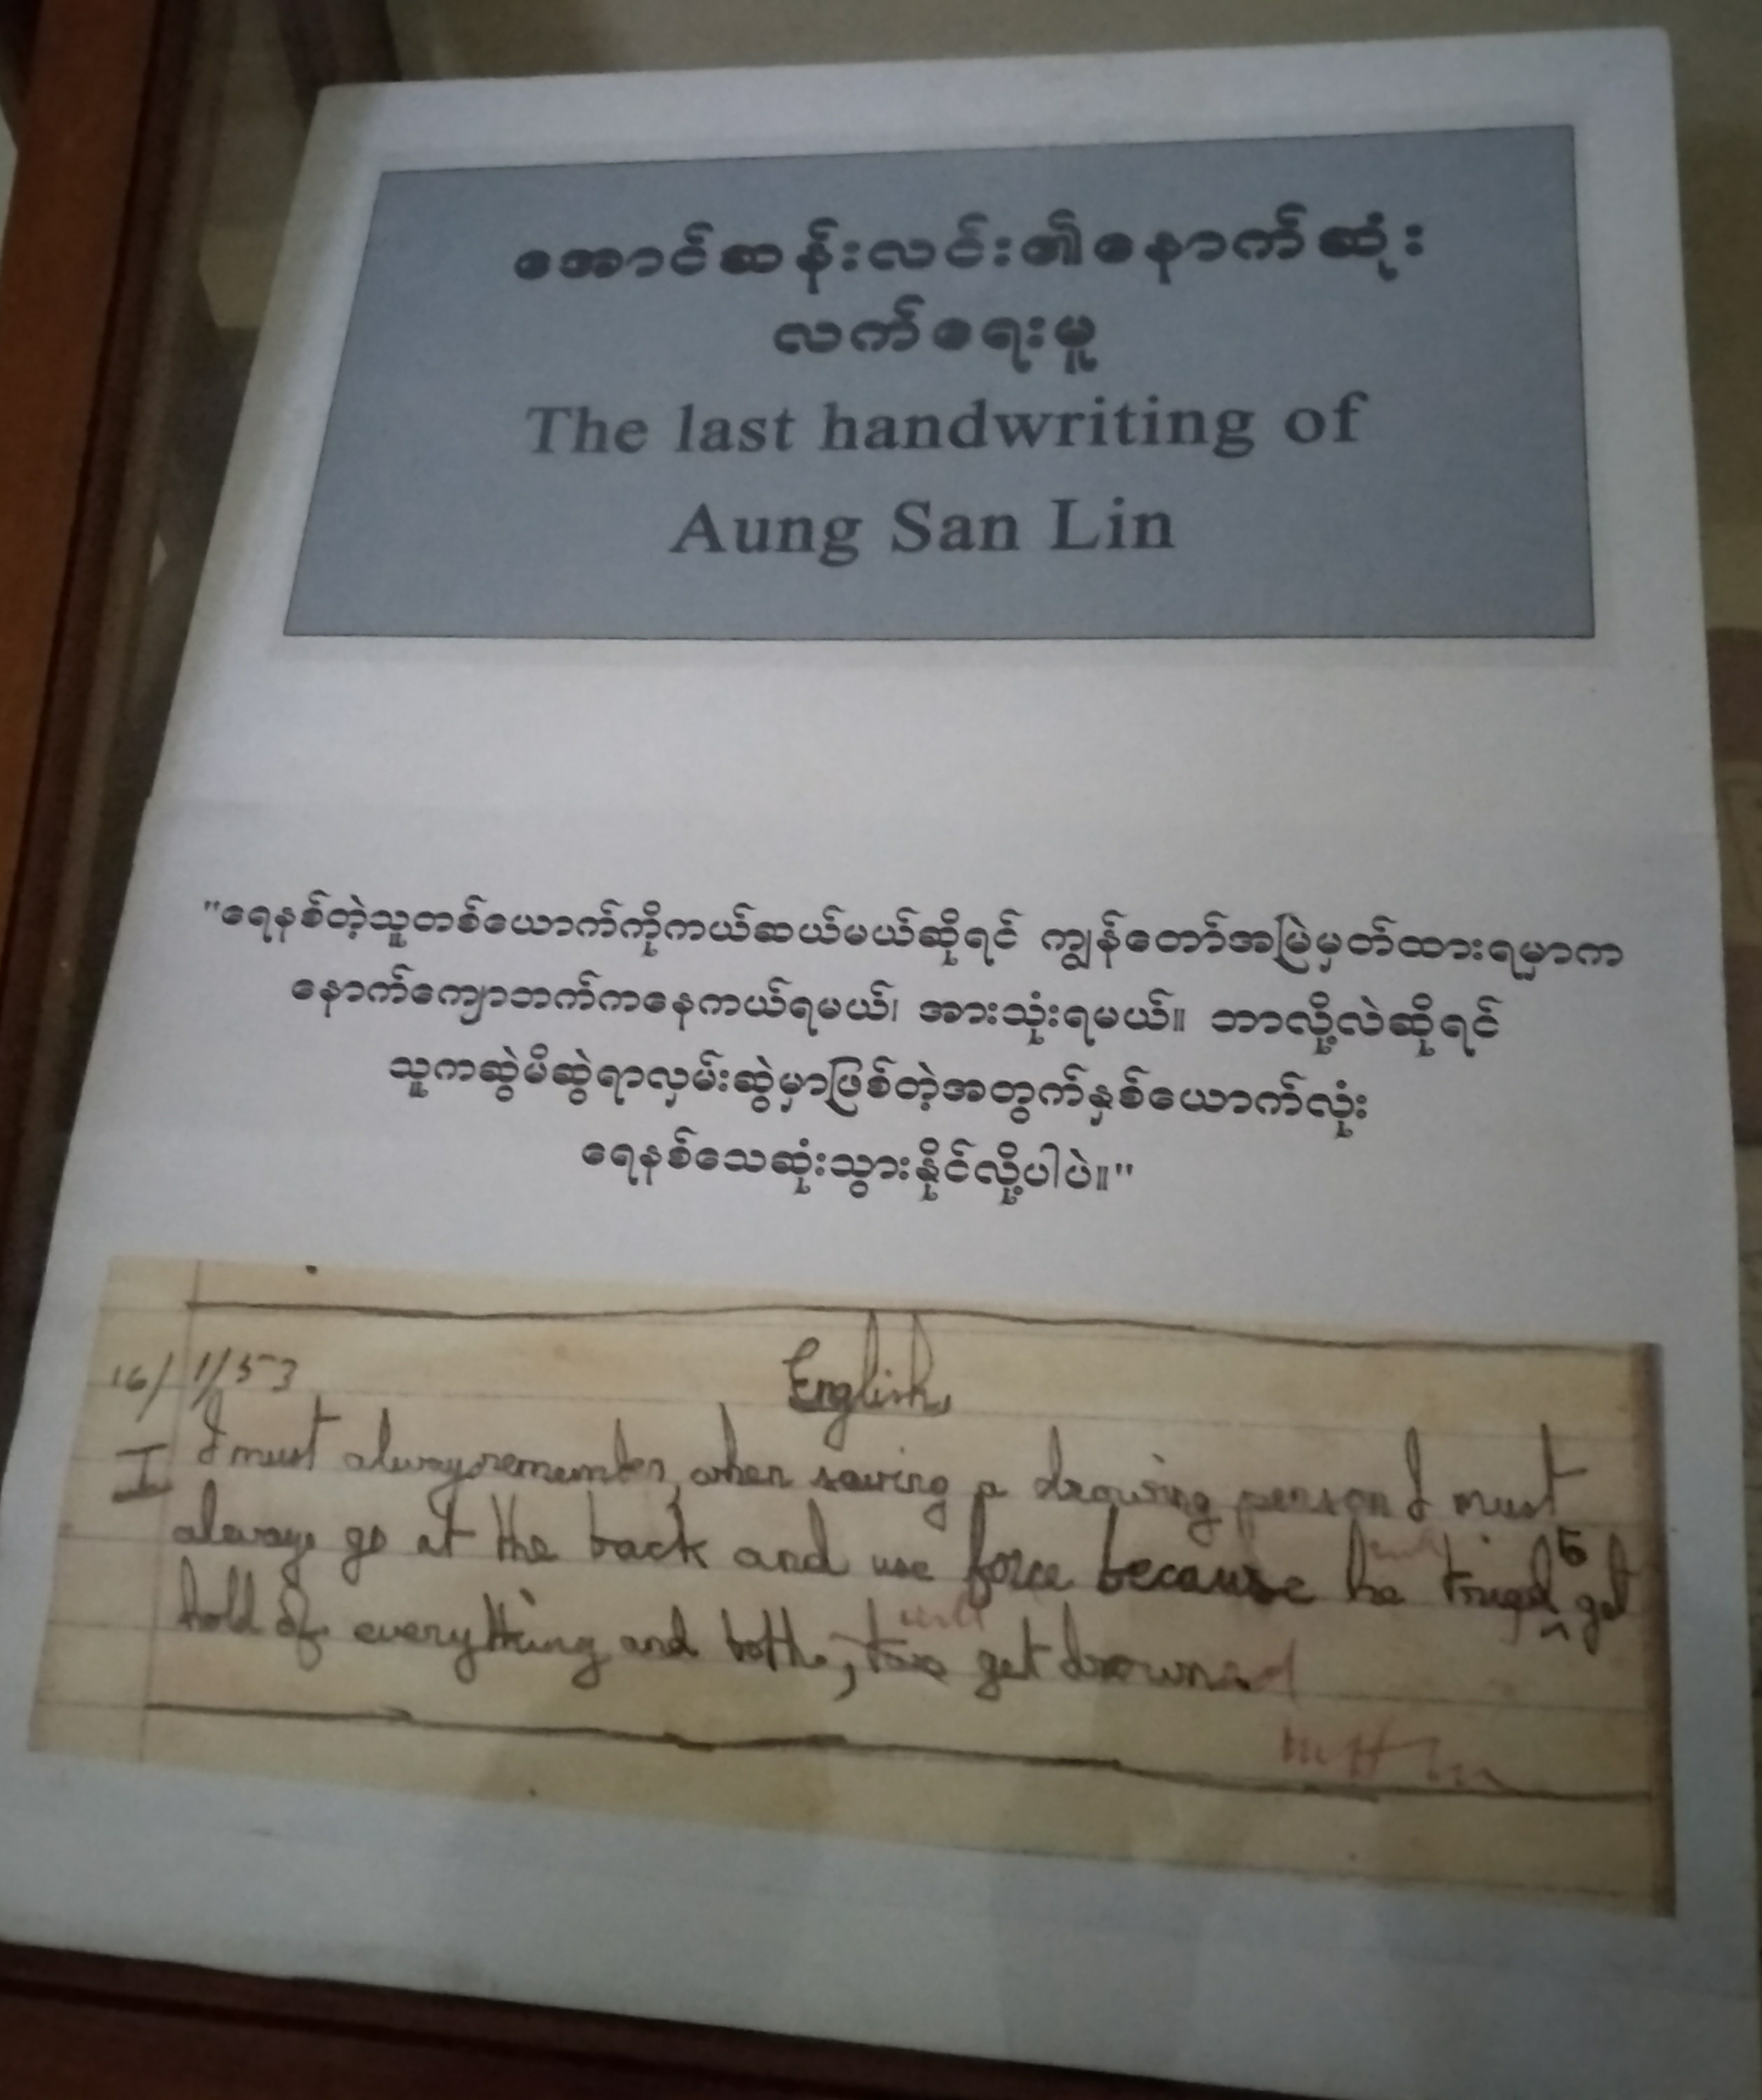 အောင်ဆန်းလင်း၏နောက်ဆုံး
လက်ရေးမူ
The last handwriting of
Aung San Lin
"ရေနစ်တဲ့သူတစ်ယောက်ကိုကယ်ဆယ်မယ်ဆိုရင် ကျွန်တော်အမြဲမှတ်ထားရမှာက
နောက်ကျောဘက်ကနေကယ်ရမယ်၊ အားသုံးရမယ်။ ဘာလို့လဲဆိုရင်
သူကဆွဲမိဆွဲရာလှမ်းဆွဲမှာဖြစ်တဲ့အတွက်နှစ်ယောက်လုံး
ရေနစ်သေဆုံးသွားနိုင်လို့ပါပဲ။"
English
16/1/53
I I must always remember, when saving a drawing person I must
always go at the back and use force because he to get
hold of everything and both, will get drowned